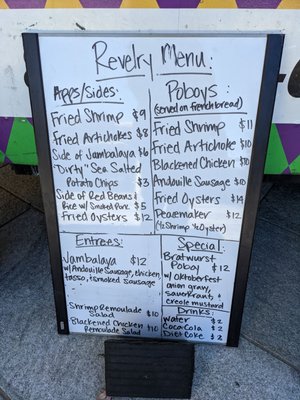 Revelry Menu:
Apps/sides:
Fried Shrimp $9
Fried Artichokes $8
Side of Jambalaya $6
"Dirty" Sea Salted
Potato Chips $3
Side of Red Beans &
Rice w/ Smoked Pork $5
Fried Oysters $12
Poboys:
(served on french bread)
Fried Shrimp $11
Fried Artichoke $10
Blackened Chicken $10
Andouille Sausage $10
Fried Oysters $14
Peacemaker $12
(½ Shrimp ½ Oyster)
Entrees:
Jambalaya $12
w/ Andouille Sausage, chicken,
tasso, & smoked sausage
Shrimp Remoulade
Salad $10
Blackened Chicken
Remoulade Salad $10
Special:
Bratwurst
Poboy $12
w/ Oktoberfest
onion gravy,
sauerkraut, &
creole mustard
Drinks:
Water $2
Coca Cola $2
Diet Coke $2